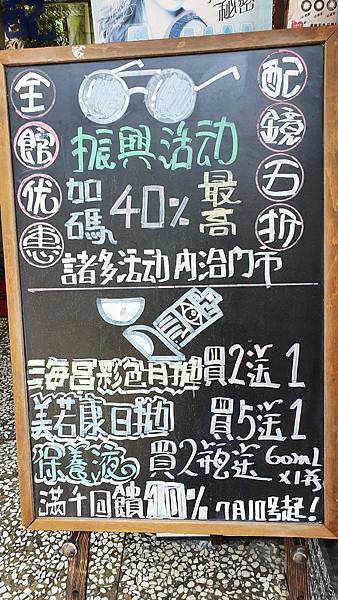 秘密
全館优惠
配鏡五折
振興活动
加碼40%最高
諸多活动內洽门市
海昌彩色月拋買2送1
美若康日拋 買5送1
保養液 買2瓶送60mL x1瓶
滿千回饋10% 7月10号起!